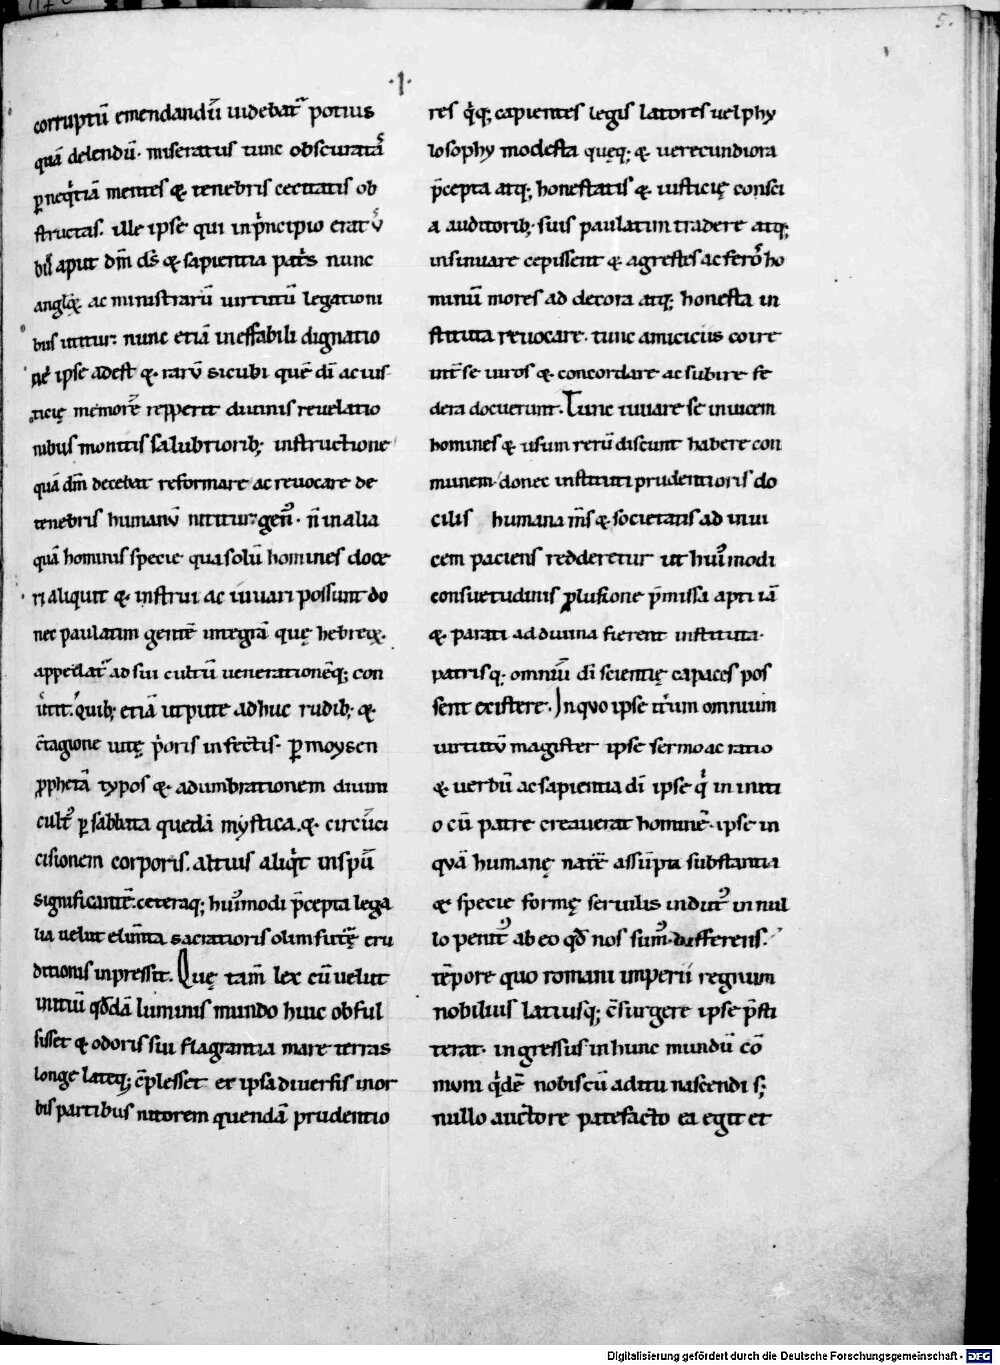 5.
·I·
corruptū emendandū uidebatᷣ potius
quā delendū· miseratus tunc obscuratā
ꝑ neq̇tiā mentes & tenebris cecitatis ob
structas. ille ipse qui inp̍ncipio erat ů
bū aput dm̄ ds̄ & sapientia patis nunc
anglꝝ ac ministrarū uirtutū legationi
bus utitur· nunc etiā ineffabili dignatio
ne ipse adest & rarū sicubi quē di ac ius
ticię memorē repperit diuinis reuelatio
nibus monitis salubriorib; instructione
quā dm̄ decebat reformare ac reuocare de
tenebris humanū nititur gen᷒· n̄ in alia
quā hominis specie qua solū homines doce
ri aliquit & instrui ac iuuari possunt do
nec paulatim gentē integrā quę hebreiꝝ
appellatᷣ ad sui cultū uenerationēq; con
u̍tit. q̍ib; etiā utpute adhuc rudib; &
c̄tagione uitę p̍oris infectis· ꝑ moysen
ꝓphetā typos & adumbrationem diuini
cult᷒ ꝑ sabbata quedā mystica. & circūci
cisionem corporis. altius aliq̍t inspū
significantē. ceteraq; hui᷒modi p̄cepta lega
lia uelut elim̄ta sacratioris olim futurę eru
ditionis inpressit. Quę tam̄ lex cū uelut
initiū qd̄dā luminis mundo huic obful
sisset & odoris sui flagrantia mare terras
longe lateq; c̄plesset et ipsa diuersis in or
bis partibus nitorem quendā prudentio
res q̍q; capientes legis latores uel phy
losophy modesta quęq; & uerecundiora
p̄cepta atq; honestatis & iusticię consci
a auditorib; suis paulatim tradere atq;
insinuare cepissent & agrestes ac fero᷒ ho
minū mores ad decora atq; honesta in
stituta reuocare. tunc amiciciis coire
int̄ se uiros & concordare ac subire fe
dera docuerunt. Tunc iuuare se inuicem
homines & usum rerū discunt habere con
munem donec instituti prudentioris do
cilis humana m̄s & societatis ad inui
cem paciens redderetur ut hui᷒modi
consuetudinis p̱lusione p̄missa apti iā
& parati ad diuina fierent instituta·
patrisq; omniū di scientię capaces pos
sent existere. In quo ipse it̍um omnium
uirtutū magister ipse sermo ac ratio
& uerbū ac sapientia di ipse q̍ in initi
o cū patre creauerat hominē. ipse in
quā humanę nat̄e assūpta substantia
& specie formę seruilis indut᷒ in nul
lo penit᷒ ab eo qd̄ nos sum᷒· differens.
tēpore quo romani imperii regnum
nobilius latiusq; c̄surgere ipse p̄sti
terat· ingressus in hunc mundū cō
muni q̍dē nobiscū aditu nascendi s;
nullo auctore patefacto ea egit et
Digitalisierung gefördert durch die Deutsche Forschungsgemeinschaft - DFG